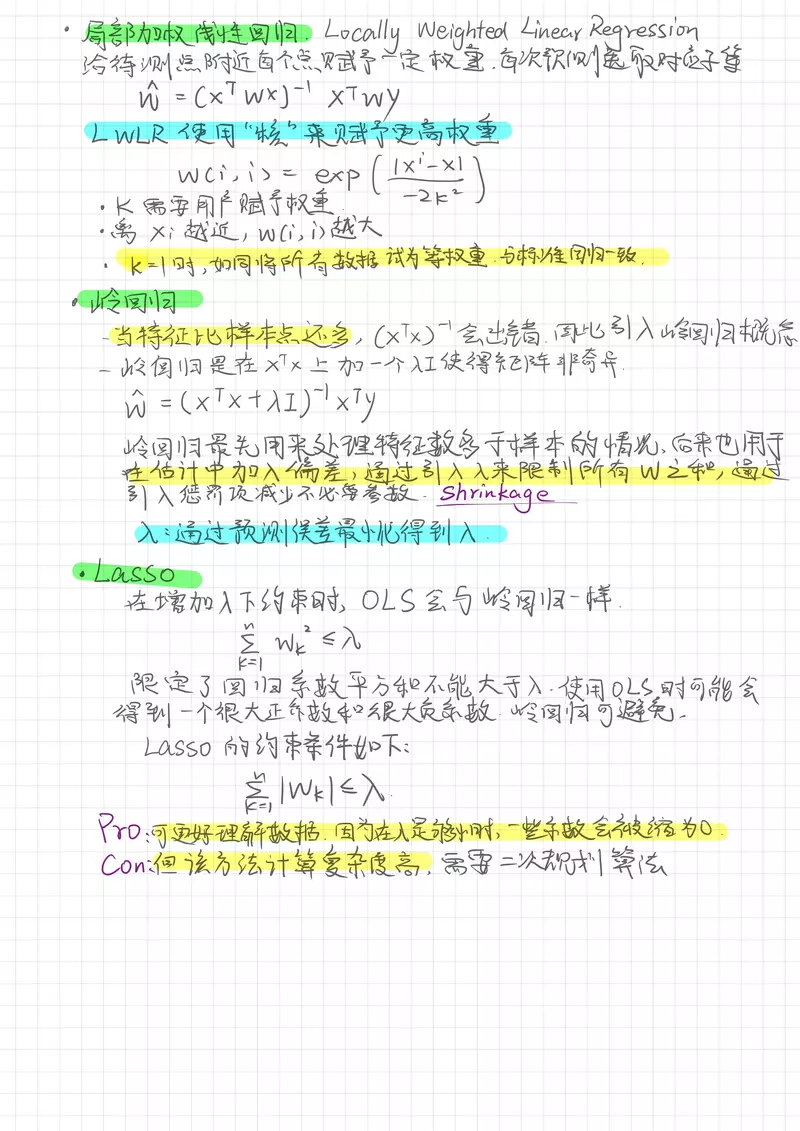 · 局部加权线性回归. Locally Weighted Linear Regression
给待测点附近每个点赋予一定权重.每次预测选取对应子集
ŵ = (xᵀwx)⁻¹ xᵀwy
LWLR 使用"核"来赋予更高权重
w(i,i) = exp(|xⁱ-x| / -2k²)
· K 需要用户赋予权重.
· 离 xi 越近, w(i,i)越大
· k=1时,如同将所有数据试为等权重.与标准回归一致.
· 岭回归
- 当特征比样本点还多, (xᵀx)⁻¹ 会出错.因此引入岭回归概念
- 岭回归是在 xᵀx 上加一个λI使得矩阵非奇异.
ŵ = (xᵀx+λI)⁻¹xᵀy
岭回归最先用来处理特征数多于样本的情况,后来也用于
在估计中加入偏差,通过引入λ来限制所有w之和,通过
引入惩罚项减少不必要参数. shrinkage
λ:通过预测误差最小化得到λ.
· Lasso
在增加以下约束时, OLS会与岭回归一样.
∑ₖ₌₁ⁿ wₖ² ≤ λ
限定了回归系数平方和不能大于λ.使用OLS时可能会
得到一个很大正系数和很大负系数.岭回归可避免.
Lasso 的约束条件如下:
∑ₖ₌₁ⁿ |wₖ| ≤ λ.
Pro:可更好理解数据.因为在λ足够小时,一些系数会被缩为0.
Con:但该方法计算复杂度高,需要二次规划算法